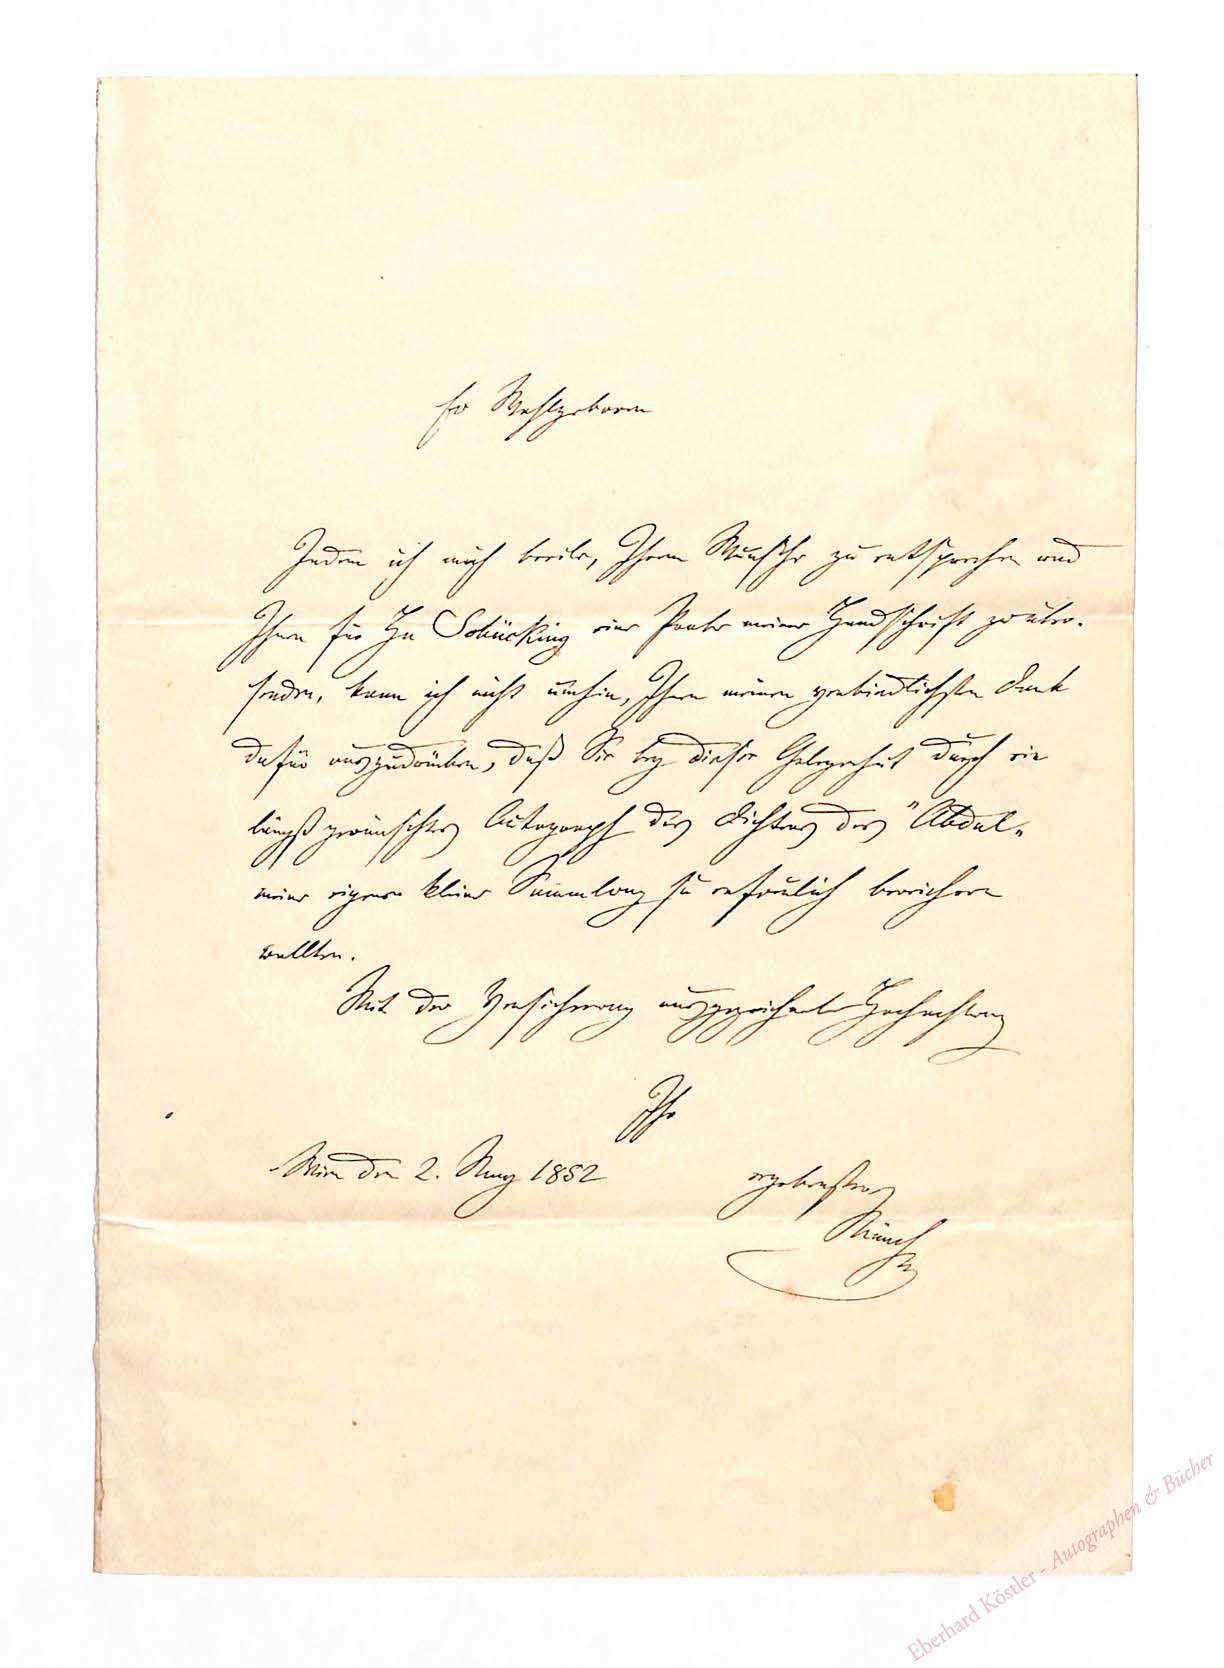 Ew Wohlgeboren
Indem ich mich beeile, Ihrem Wunsche zu entsprechen und
Ihnen für Hn Schücking eine Probe meiner Handschrift zu über-
senden, kann ich nicht umhin, Ihnen meinen verbindlichsten Dank
dafür auszudrücken, daß Sie bey dieser Gelegenheit durch ein
längst gewünschtes Autograph des Dichters des "Abdul"
meine eigene kleine Sammlung so erfreulich bereichern
wollten.
Mit der Versicherung ausgezeichneter Hochachtung
Ihr
Wien den 2. May 1852
ergebenster
Münch
Eberhard Köstler - Autographen & Bücher